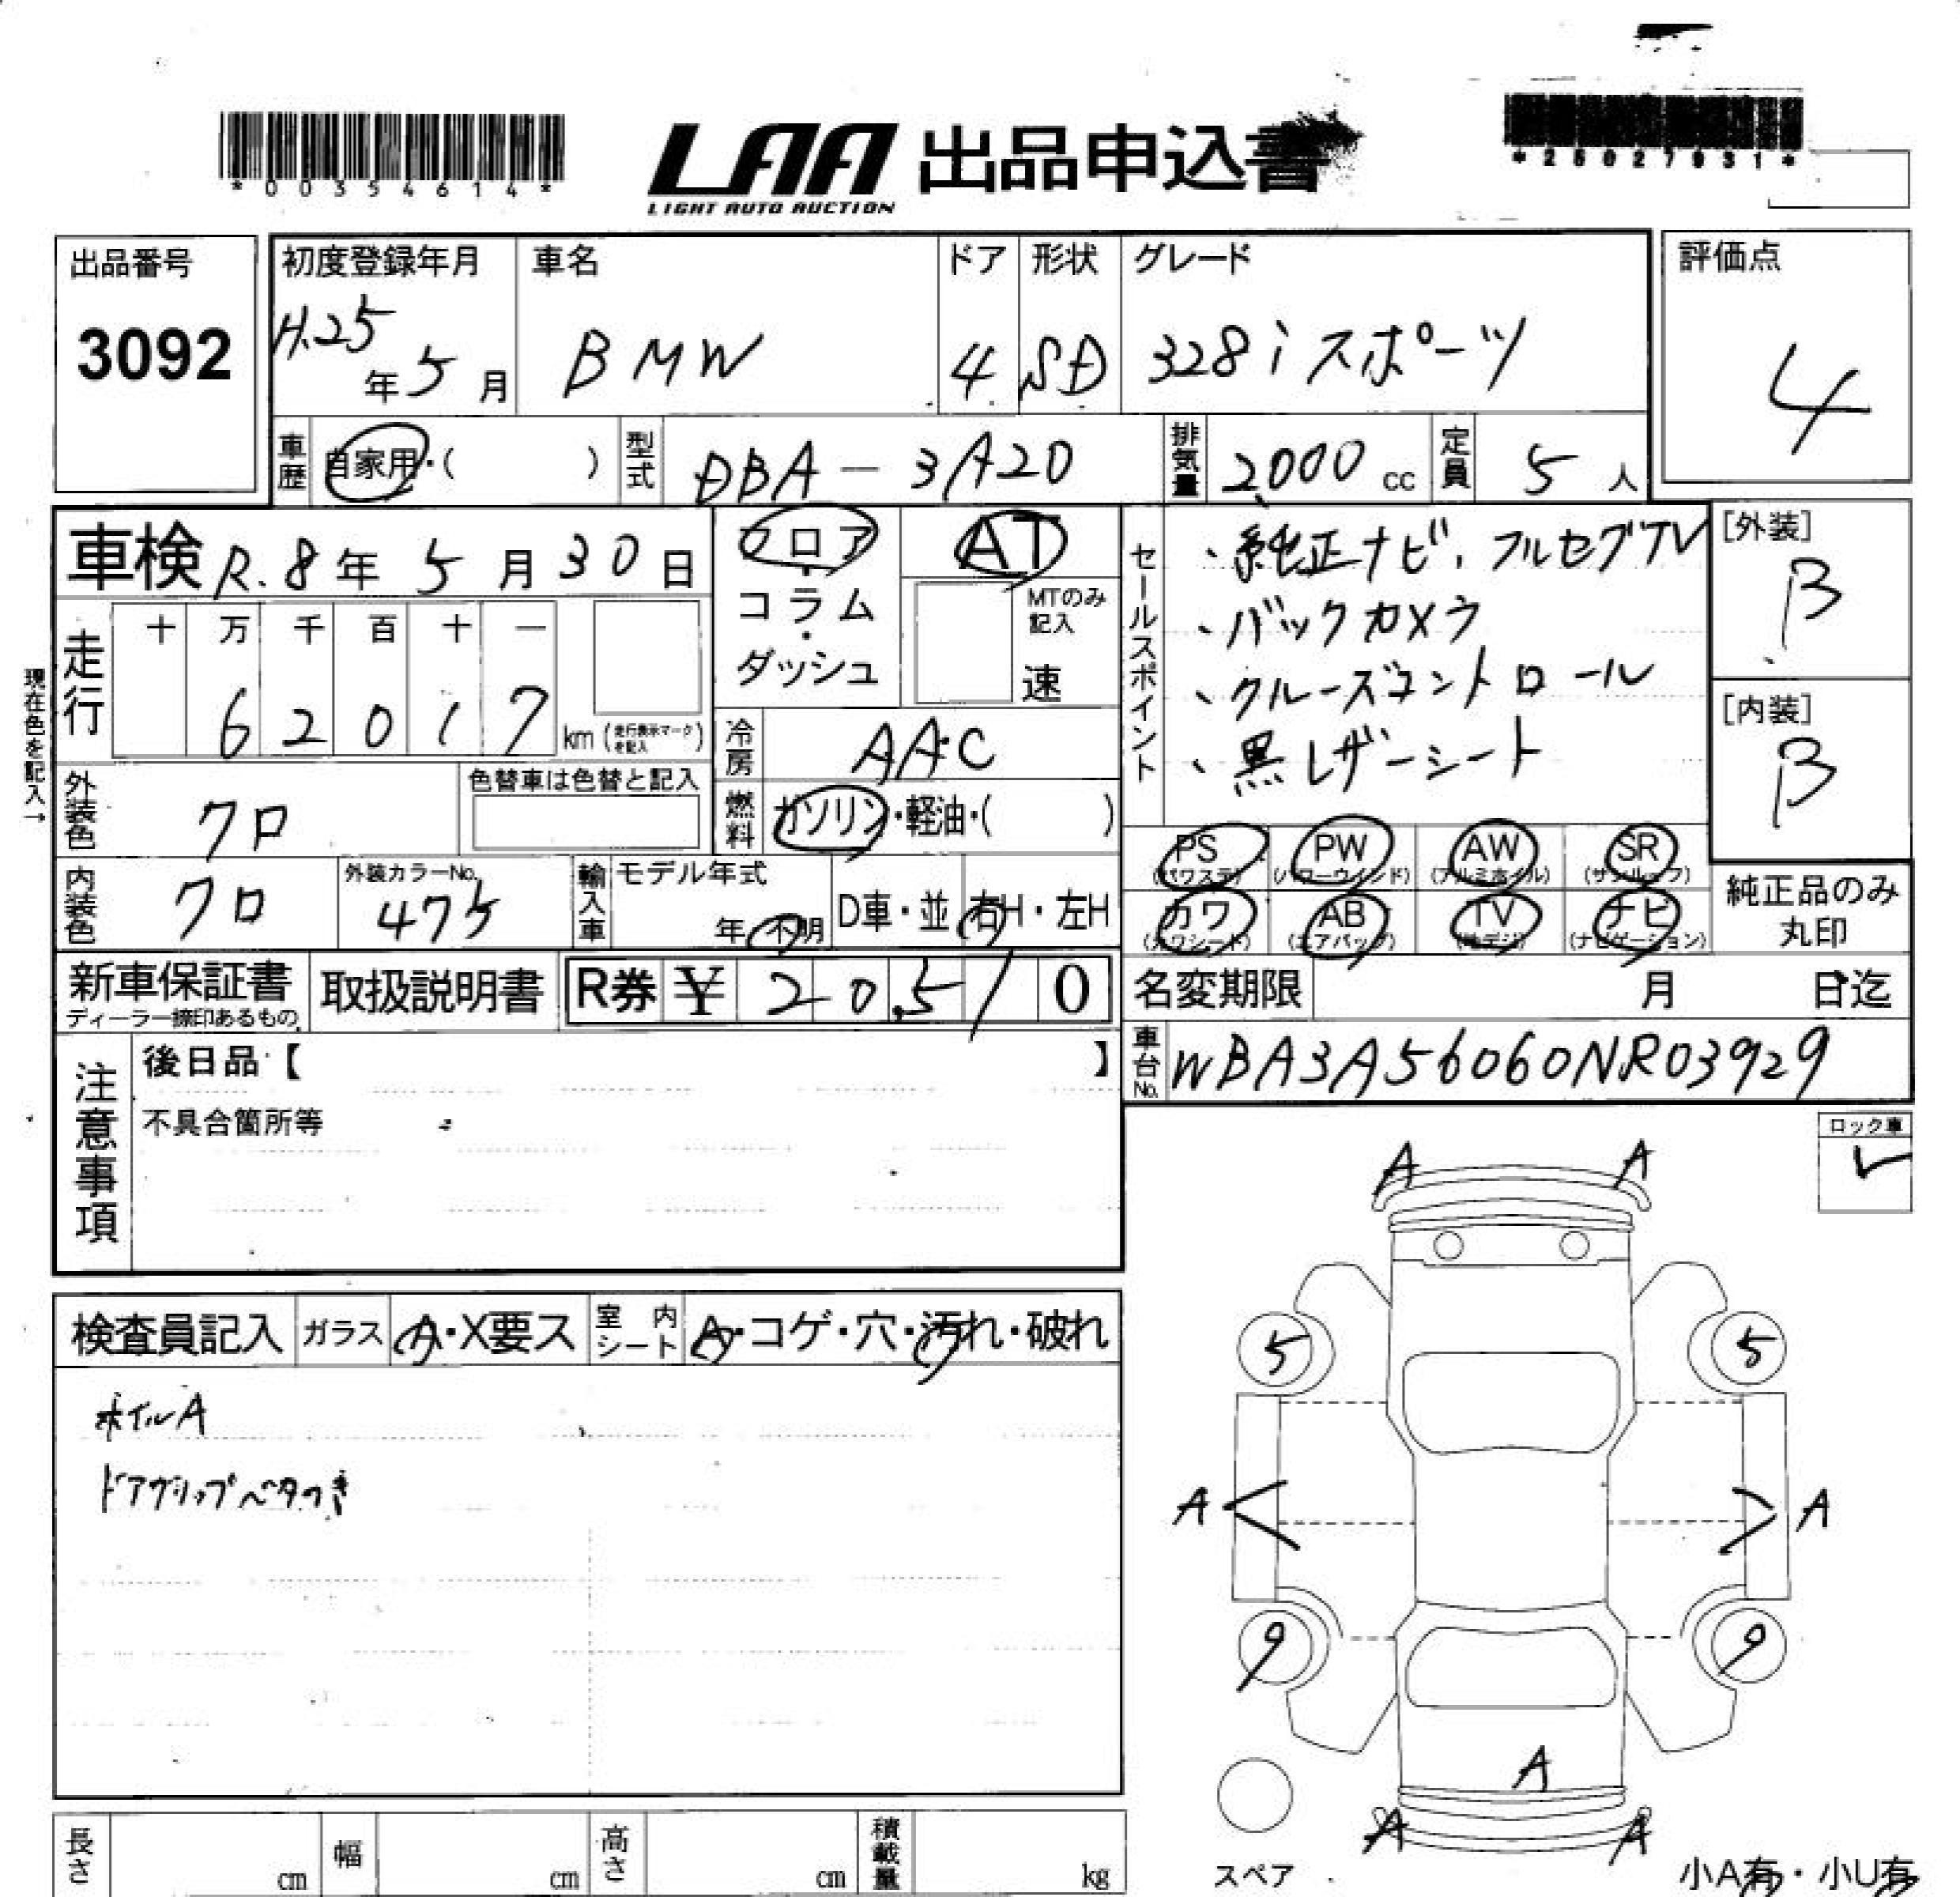 *00354614*
LAA 出品申込書
LIGHT AUTO AUCTION
*25027931*
出品番号
3092
初度登録年月
H.25年5月
車名
BMW
ドア
4
形状
SD
グレード
328i スポーツ
評価点
4
車歴
自家用・( )
型式
DBA-3A20
排気量
2,000 cc
定員
5 人
車検 R.8年5月30日
フロア・コラム・ダッシュ
AT
MTのみ記入
速
現在色を記入→
走行
十 万 千 百 十 一
6 2 0 1 7 km (走行表示マークを記入)
冷房
AAC
燃料
ガソリン・軽油・( )
外装色
クロ
色替車は色替と記入
内装色
クロ
外装カラーNo.
475
輸入車
モデル年式
年・不明
D車・並
右H・左H
セールスポイント
、純正ナビ、フルセグTV
、バックカメラ
、クルーズコントロール
、黒レザーシート
[外装]
B
[内装]
B
PS (パワステ)
PW (パワーウインド)
AW (アルミホイル)
SR (サンルーフ)
カワ (カワシート)
AB (エアバッグ)
TV (地デジ)
ナビ (ナビゲーション)
純正品のみ丸印
新車保証書
ディーラー捺印あるもの
取扱説明書
R券 ¥ 20,510
名変期限 月 日迄
車台No.
WBA3A56060NR03929
注意事項
後日品【 】
不具合箇所等
ロック車
✓
検査員記入
ガラス
A・X要ス
室内シート
A・コゲ・穴・汚れ・破れ
ホイルA
ドアグリップベタつき
A A
5 5
A A
9 9
A
A A
スペア
小A有・小U有
長さ cm
幅 cm
高さ cm
積載量 kg